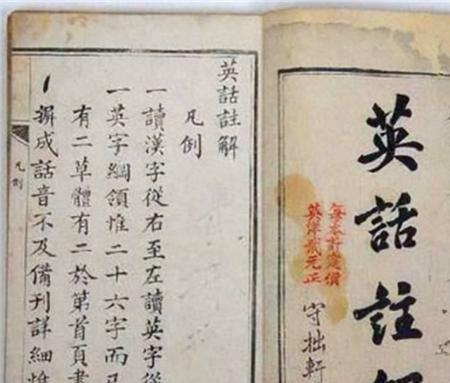 英話註
每本計定價
元正
守拙軒
英話註解
凡例
一讀漢字從右至左讀英字從
一英字綱領惟二十六字而
有二草體有二於第首頁
成話音不及備刊詳細惟
凡例